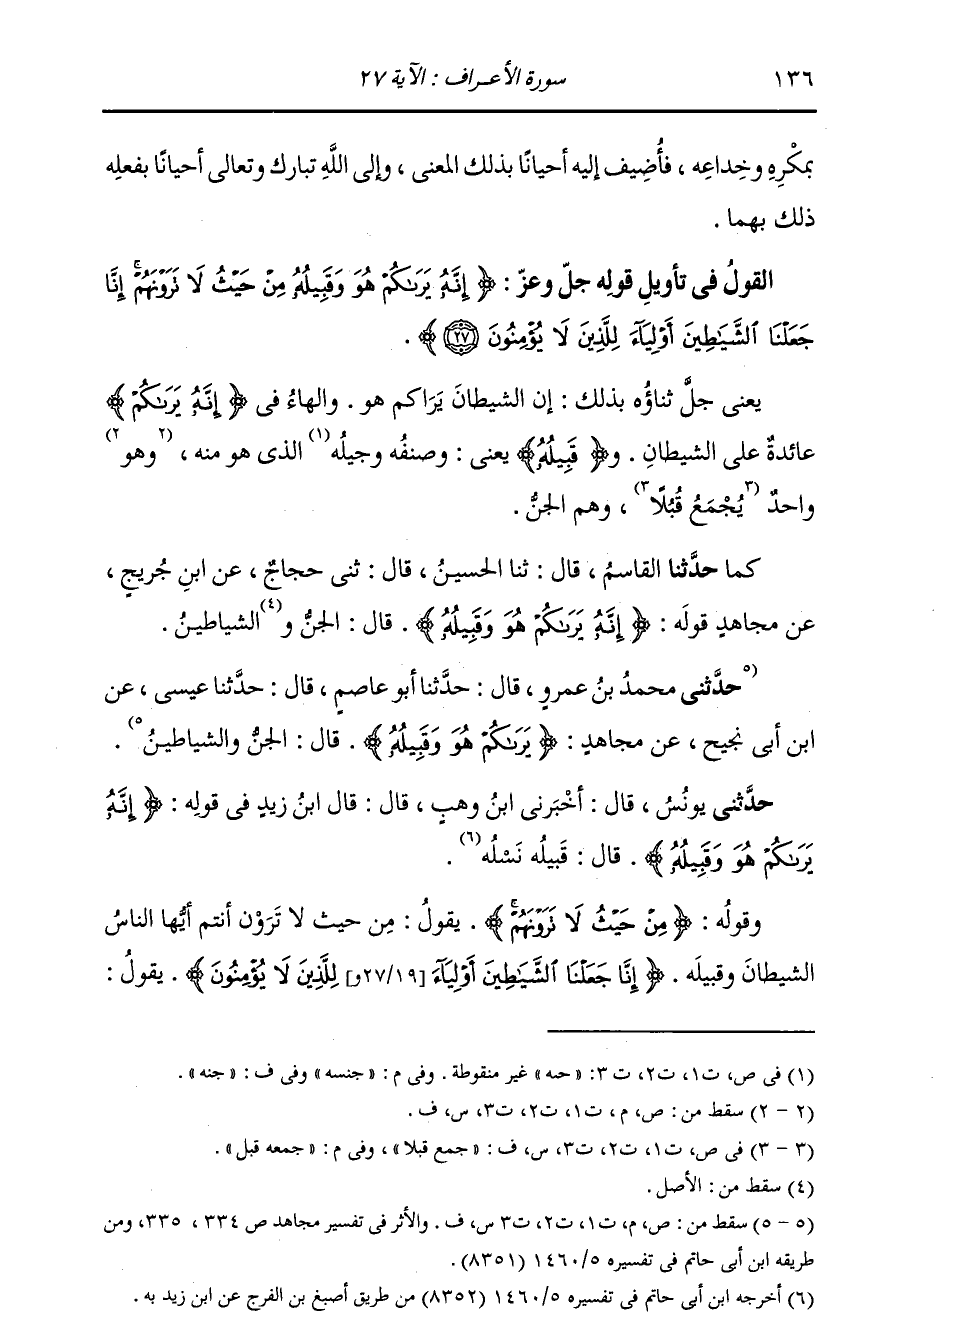 ١٣٦ سورة الأعراف : الآية ٢٧
بمكْرِهِ وخِداعِه ، فأُضِيف إليه أحيانًا بذلك المعنى ، وإلى اللَّهِ تبارك وتعالى أحيانًا بفعلِه
ذلك بهما .
القولُ فى تأويلِ قولِه جلّ وعزّ : ﴿ إِنَّهُ يَرَىٰكُمْ هُوَ وَقَبِيلُهُ مِنْ حَيْثُ لَا تَرَوْنَهُمْ ۗ إِنَّا
جَعَلْنَا ٱلشَّيَٰطِينَ أَوْلِيَآءَ لِلَّذِينَ لَا يُؤْمِنُونَ ٢٧ ﴾ .
يعنى جلَّ ثناؤُه بذلك : إن الشيطانَ يَرَاكم هو . والهاءُ فى ﴿ إِنَّهُ يَرَىٰكُمْ ﴾
عائدةٌ على الشيطانِ . و﴿ قَبِيلُهُ ﴾ يعنى : وصنفُه وجيلُه (١) الذى هو منه ، (٢ وهو ٢)
واحدٌ (٣ يُجْمَعُ قُبُلًا ٣) ، وهم الجنُّ .
كما حدَّثنا القاسمُ ، قال : ثنا الحسينُ ، قال : ثنى حجاجٌ ، عن ابنِ جُريجٍ ،
عن مجاهدٍ قولَه : ﴿ إِنَّهُ يَرَىٰكُمْ هُوَ وَقَبِيلُهُ ﴾ . قال : الجنُّ و(٤) الشياطينُ .
(٥ حدَّثنى محمدُ بنُ عمرٍو ، قال : حدَّثنا أبو عاصمٍ ، قال : حدَّثنا عيسى ، عن
ابن أبى نجيح ، عن مجاهدٍ : ﴿ يَرَىٰكُمْ هُوَ وَقَبِيلُهُ ﴾ . قال : الجنُّ والشياطينُ ٥) .
حدَّثنى يونُسُ ، قال : أخْبَرنى ابنُ وهبٍ ، قال : قال ابنُ زيدٍ فى قولِه : ﴿ إِنَّهُ
يَرَىٰكُمْ هُوَ وَقَبِيلُهُ ﴾ . قال : قَبيلُه نَسْلُه (٦) .
وقولُه : ﴿ مِنْ حَيْثُ لَا تَرَوْنَهُمْ ۗ ﴾ . يقولُ : مِن حيث لا تَرَوْن أنتم أيُّها الناسُ
الشيطانَ وقبيلَه . ﴿ إِنَّا جَعَلْنَا ٱلشَّيَٰطِينَ أَوْلِيَآءَ [٢٧/١٩و] لِلَّذِينَ لَا يُؤْمِنُونَ ﴾ . يقولُ :
(١) فى ص، ت١، ت٢، ت٣: «حه» غير منقوطة . وفى م : «جنسه» وفى ف : «جنه» .
(٢ - ٢) سقط من : ص، م ، ت١، ت٢، ت٣، س، ف .
(٣ - ٣) فى ص، ت١، ت٢، ت٣، س، ف : «جمع قبلا» ، وفى م : «جمعه قبل» .
(٤) سقط من : الأصل .
(٥ - ٥) سقط من : ص، م، ت١، ت٢، ت٣ س، ف . والأثر فى تفسير مجاهد ص ٣٣٤ ، ٣٣٥، ومن
طريقه ابن أبى حاتم فى تفسيره ١٤٦٠/٥ (٨٣٥١) .
(٦) أخرجه ابن أبى حاتم فى تفسيره ١٤٦٠/٥ (٨٣٥٢) من طريق أصبغ بن الفرج عن ابن زيد به .